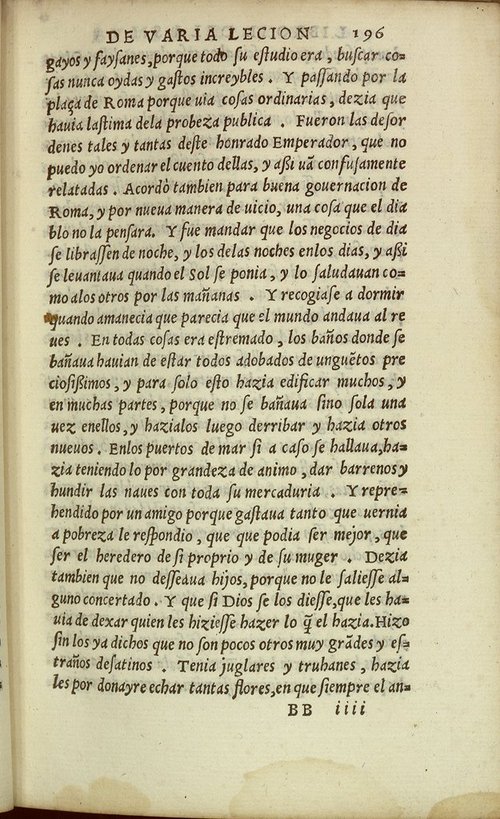 DE VARIA LECION 196
gayos y faysanes, porque todo su estudio era, buscar co=
sas nunca oydas y gastos increybles. Y passando por la
plaça de Roma porque uia cosas ordinarias, dezia que
hauia lastima dela probeza publica. Fueron las desor
denes tales y tantas deste honrado Emperador, que no
puedo yo ordenar el cuento dellas, y aßi uā confusamente
relatadas. Acordò tambien para buena gouernacion de
Roma, y por nueua manera de uicio, una cosa que el dia
blo no la pensara. Y fue mandar que los negocios de dia
se librassen de noche, y los delas noches enlos dias, y aßi
se leuantaua quando el Sol se ponia, y lo saludauan co=
mo alos otros por las mañanas. Y recogiase a dormir
quando amanecia que parecia que el mundo andaua al re
ues. En todas cosas era estremado, los baños donde se
bañaua hauian de estar todos adobados de unguētos pre
ciosißimos, y para solo esto hazia edificar muchos, y
en muchas partes, porque no se bañaua sino sola una
uez enellos, y hazialos luego derribar y hazia otros
nueuos. Enlos puertos de mar si a caso se hallaua, ha=
zia teniendo lo por grandeza de animo, dar barrenos y
hundir las naues con toda su mercaduria. Y repre=
hendido por un amigo porque gastaua tanto que uernia
a pobreza le respondio, que que podia ser mejor, que
ser el heredero de si proprio y de su muger. Dezia
tambien que no desseaua hijos, porque no le saliesse al=
guno concertado. Y que si Dios se los diesse, que les ha=
uia de dexar quien les hiziesse hazer lo q̄ el hazia. Hizo
sin los ya dichos que no son pocos otros muy grādes y es=
traños desatinos. Tenia juglares y truhanes, hazia
les por donayre echar tantas flores, en que siempre el an=
BB iiii